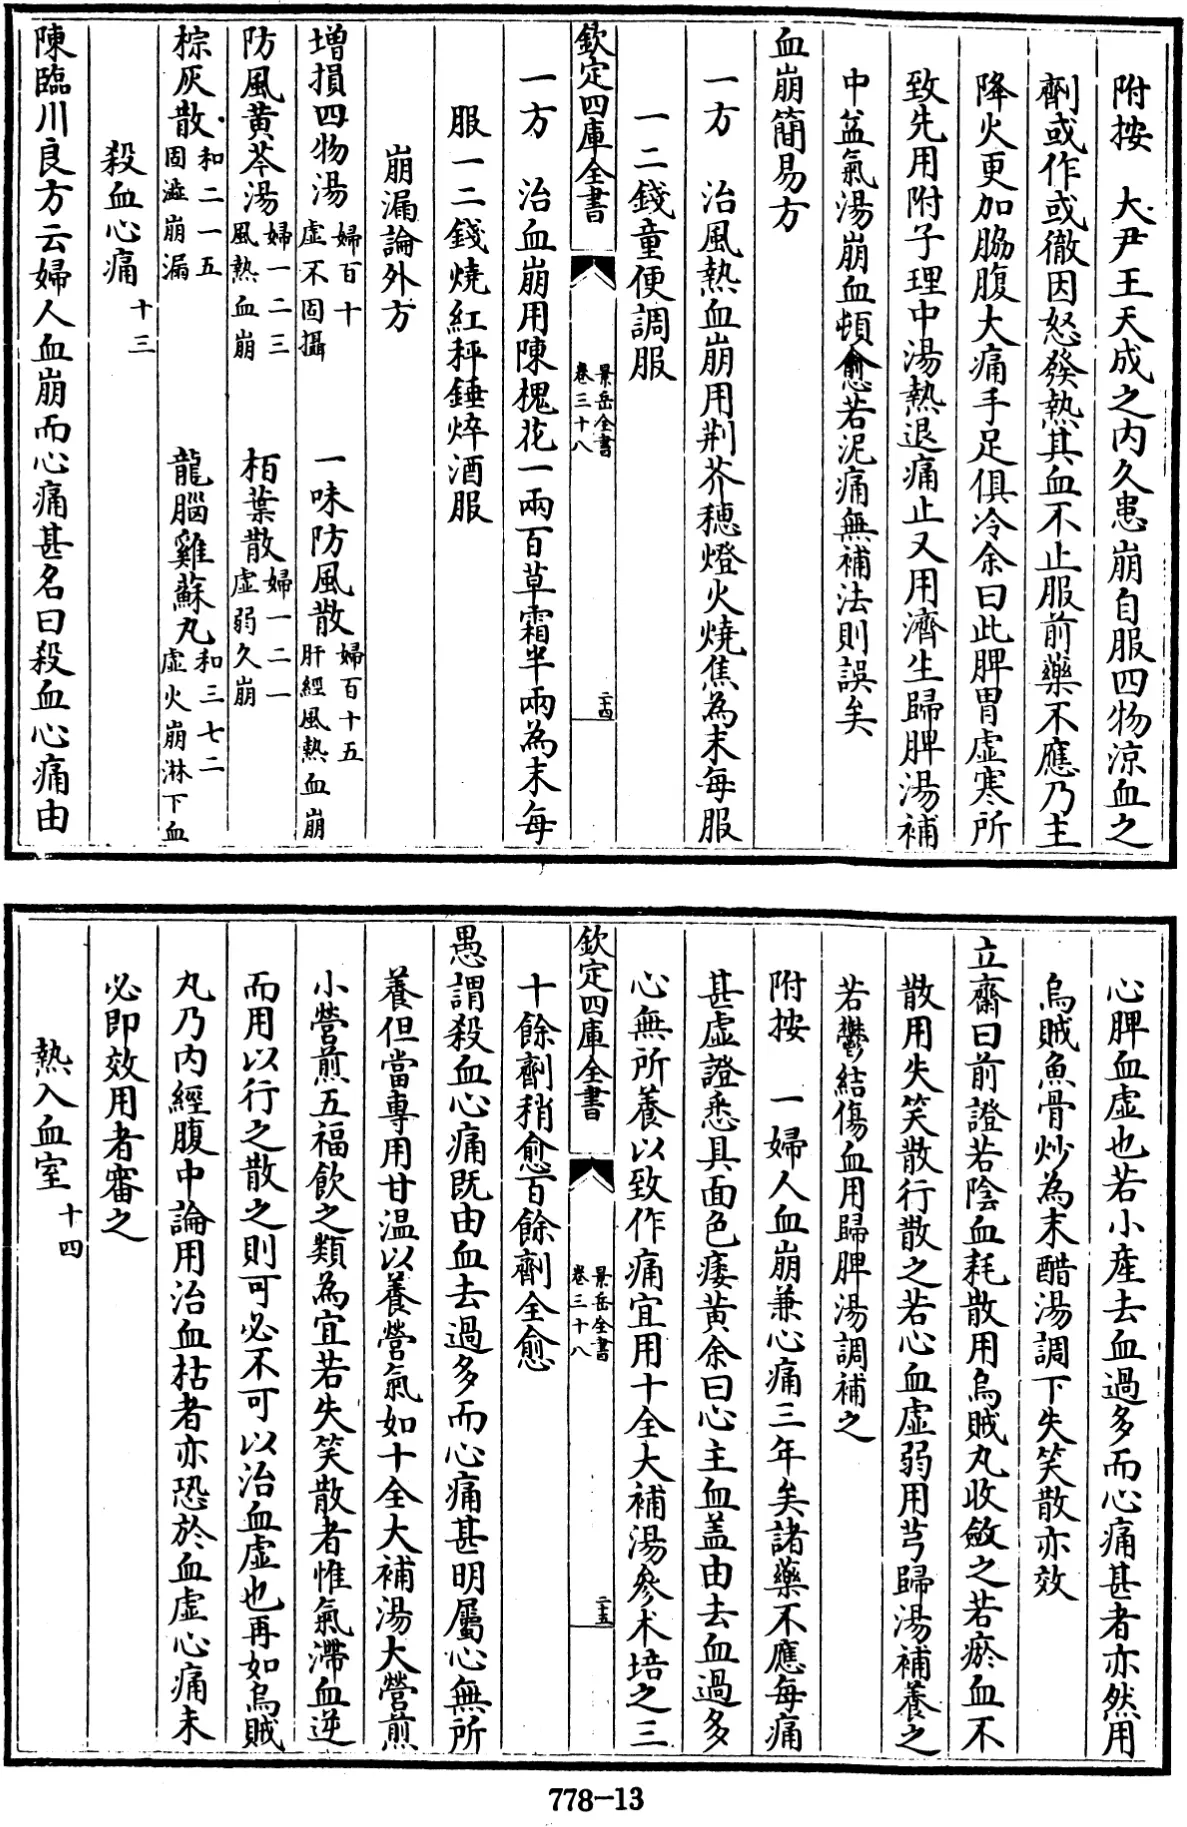 附按　大尹王天成之内久患崩自服四物涼血之
劑或作或徹因怒發熱其血不止服前藥不應乃主
降火更加脇腹大痛手足俱冷余曰此脾胃虚寒所
致先用附子理中湯熱退痛止又用濟生歸脾湯補
中益氣湯崩血頓愈若泥痛無補法則誤矣
血崩簡易方
一方　治風熱血崩用荆芥穗燈火燒焦為末每服
一二錢童便調服
欽定四庫全書
景岳全書
卷三十八
二十四
一方　治血崩用陳槐花一兩百草霜半兩為末每
服一二錢燒紅秤錘焠酒服
崩漏論外方
增損四物湯婦百十虚不固攝　一味防風散婦百十五肝經風熱血崩
防風黄芩湯婦一二三風熱血崩　栢葉散婦一二一虚弱久崩
棕灰散和二一五固澁崩漏　龍腦雞蘇丸和三七二虚火崩淋下血
殺血心痛十三
陳臨川良方云婦人血崩而心痛甚名曰殺血心痛由
心脾血虚也若小産去血過多而心痛甚者亦然用
烏賊魚骨炒為末醋湯調下失笑散亦效
立齋曰前證若陰血耗散用烏賊丸收斂之若瘀血不
散用失笑散行散之若心血虚弱用芎歸湯補養之
若鬱結傷血用歸脾湯調補之
附按　一婦人血崩兼心痛三年矣諸藥不應每痛
甚虚證悉具面色痿黄余曰心主血蓋由去血過多
心無所養以致作痛宜用十全大補湯參术培之三
欽定四庫全書
景岳全書
卷三十八
二十五
十餘劑稍愈百餘劑全愈
愚謂殺血心痛既由血去過多而心痛甚明屬心無所
養但當專用甘温以養營氣如十全大補湯大營煎
小營煎五福飲之類為宜若失笑散者惟氣滯血逆
而用以行之散之則可必不可以治血虚也再如烏賊
丸乃内經腹中論用治血枯者亦恐於血虚心痛未
必即效用者審之
熱入血室十四
778-13